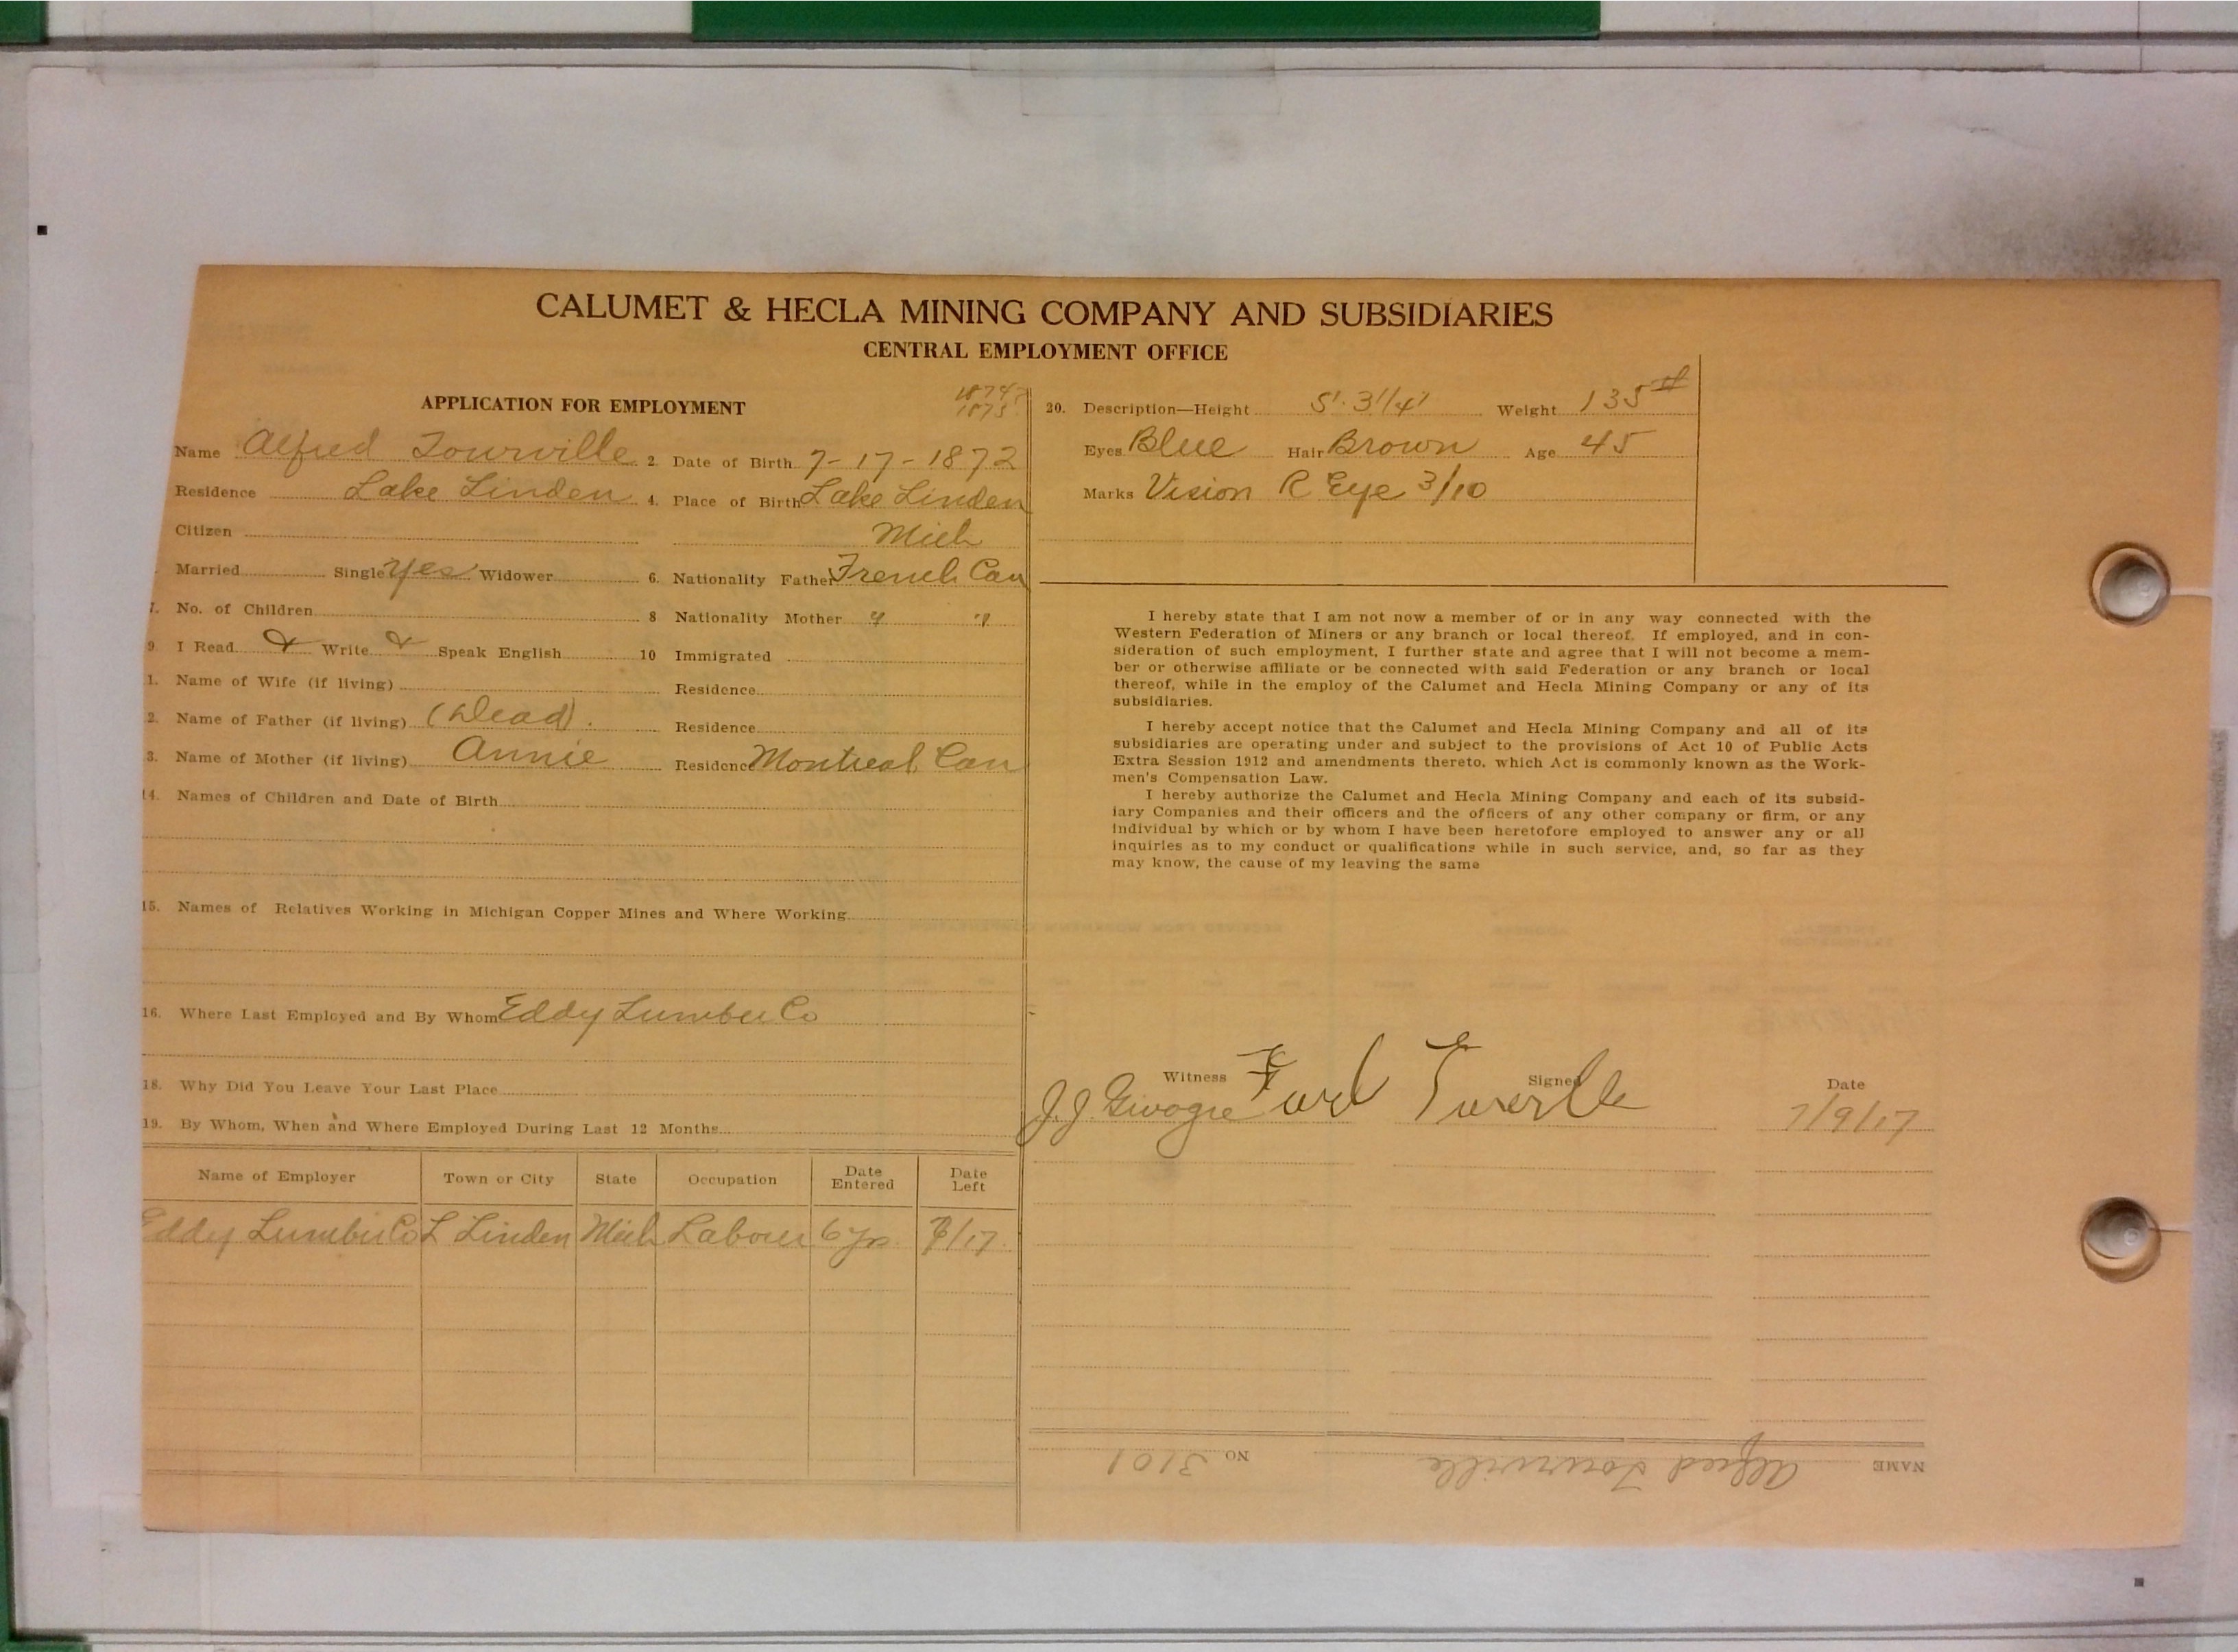 CALUMET & HECLA MINING COMPANY AND SUBSIDIARIES
CENTRAL EMPLOYMENT OFFICE
APPLICATION FOR EMPLOYMENT
1875
Name Alfred Tourville 2. Date of Birth 7-17-1872
Residence Lake Linden 4. Place of Birth Lake Linden
Citizen Mich
Married Single Yes Widower 6. Nationality Father French Can
7. No. of Children 8 Nationality Mother " "
9 I Read Write Speak English 10 Immigrated
1. Name of Wife (if living) Residence
2. Name of Father (if living) (Dead). Residence
3. Name of Mother (if living) Annie Residence Montreal Can
14. Names of Children and Date of Birth
15. Names of Relatives Working in Michigan Copper Mines and Where Working
16. Where Last Employed and By Whom Eddy Lumber Co
18. Why Did You Leave Your Last Place
19. By Whom, When and Where Employed During Last 12 Months
Name of Employer Town or City State Occupation Date Entered Date Left
Eddy Lumber Co L Linden Mich Laborer 6 yrs 7/17
20. Description—Height 5' 3 1/4" Weight 135#
Eyes Blue Hair Brown Age 45
Marks Vision R Eye 3/10
I hereby state that I am not now a member of or in any way connected with the
Western Federation of Miners or any branch or local thereof. If employed, and in con-
sideration of such employment, I further state and agree that I will not become a mem-
ber or otherwise affiliate or be connected with said Federation or any branch or local
thereof, while in the employ of the Calumet and Hecla Mining Company or any of its
subsidiaries.
I hereby accept notice that the Calumet and Hecla Mining Company and all of its
subsidiaries are operating under and subject to the provisions of Act 10 of Public Acts
Extra Session 1912 and amendments thereto, which Act is commonly known as the Work-
men's Compensation Law.
I hereby authorize the Calumet and Hecla Mining Company and each of its subsid-
iary Companies and their officers and the officers of any other company or firm, or any
individual by which or by whom I have been heretofore employed to answer any or all
inquiries as to my conduct or qualifications while in such service, and, so far as they
may know, the cause of my leaving the same
Witness Signed Date
J.J. 7/9/17
NAME Alfred Tourville NO 3101